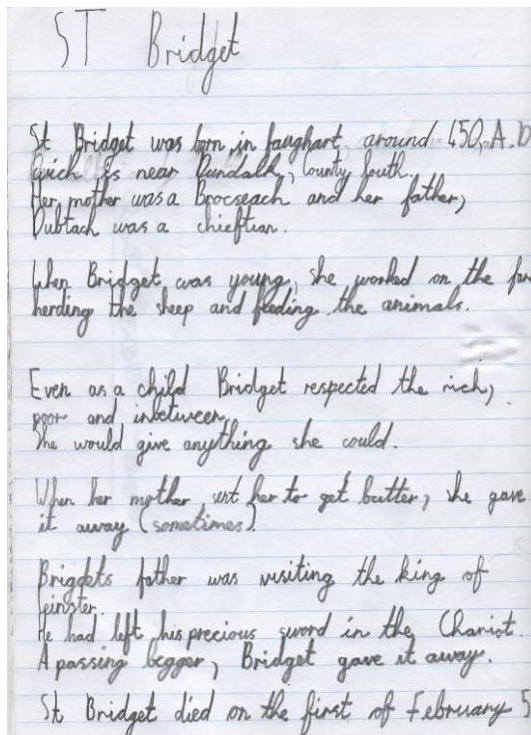 ST Bridget
St Bridget was born in faughart, around 450, A.D
wich is near Dundalk, County Louth.
Her mother was a Brocseach and her father,
Dubtach was a chieftian.
When Bridget was young, she worked on the far
herding the sheep and feeding the animals.
Even as a child Bridget respected the rich,
poor and inbetween
She would give anything she could.
When her mother sent her to get butter, she gave
it away (sometimes).
Brigdets father was visiting the king of
leinster.
He had left his precious sword in the Chariot.
A passing begger, Bridget gave it away.
St Bridget died on the first of February 5